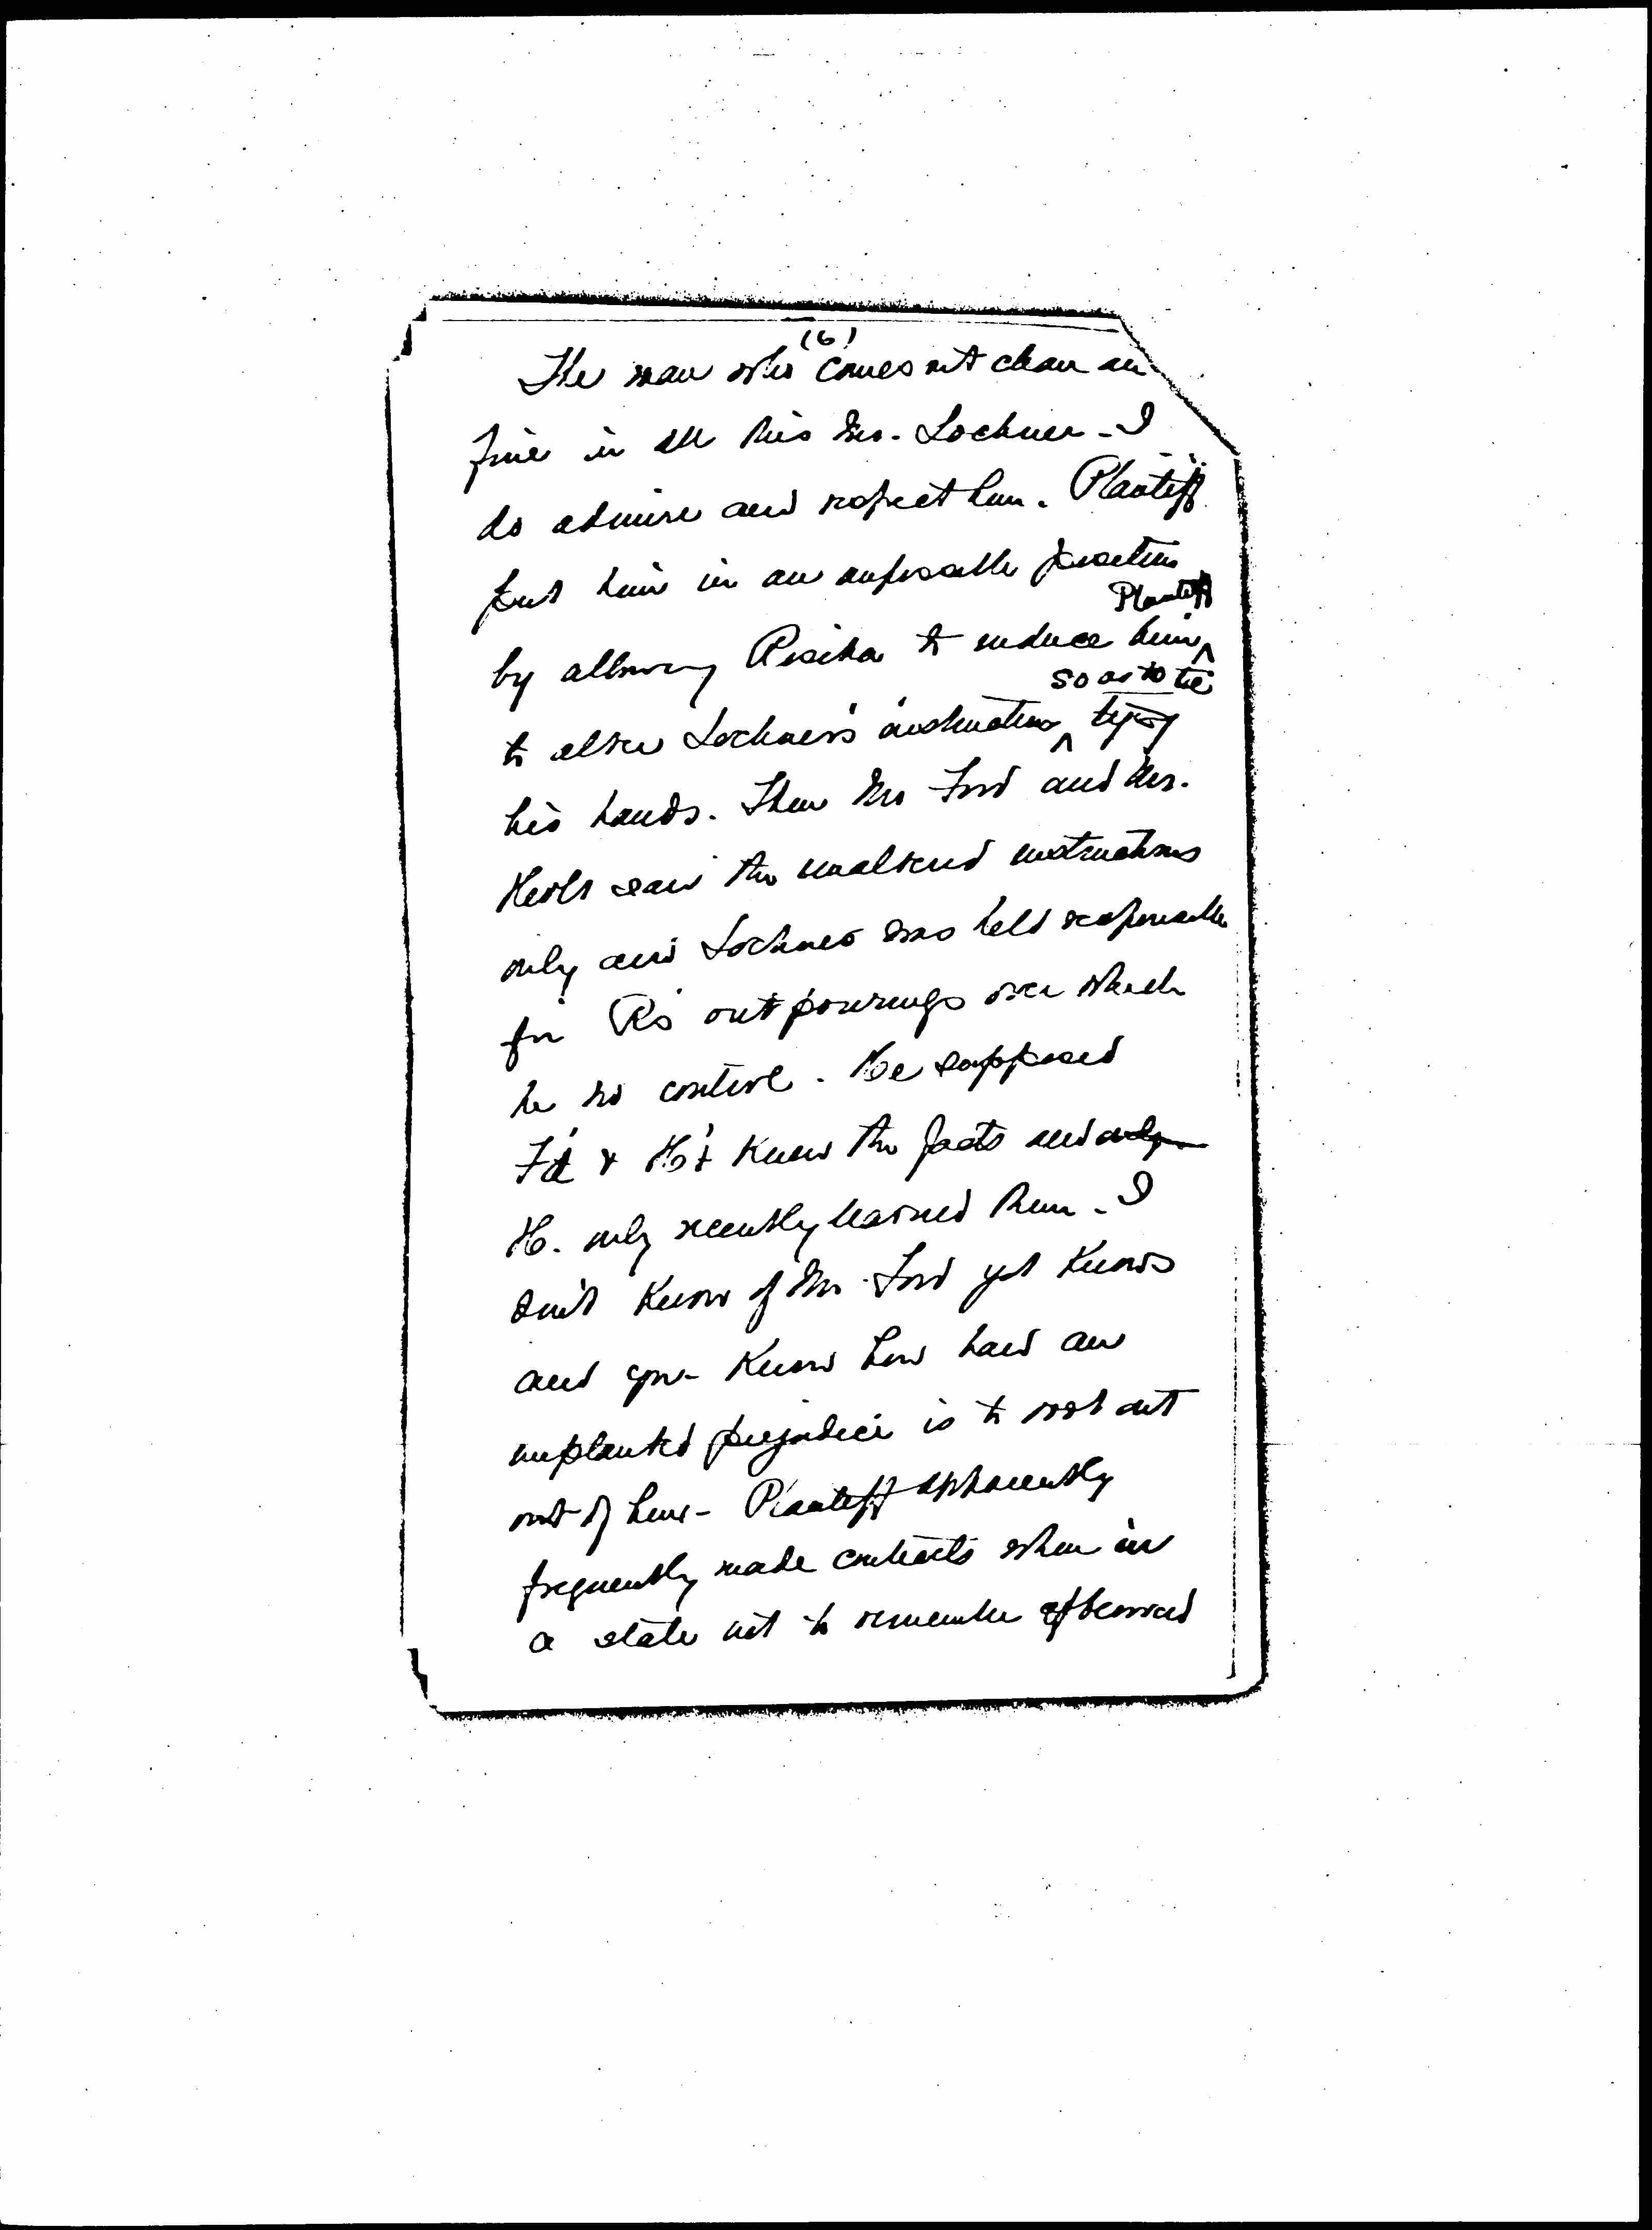 (6)
The man who comes out clean an
fine in all this Mr. Lochner - I
do admire and respect him. Plaintiff
put him in an impossible position
Plaintiff
by allowing to induce him
so as to tie
to alter Lochner's instructions tying
his hands. Then Mr Ford and Mr.
saw the unaltered instructions
only and Lochner was held responsible
for R's outpourings over which
he no control. He supposed
F'd & H'd knew the facts and only
H. only recently learned them - I
don't know if Mr. Ford yet knows
and you know how hard an
implanted prejudice is to root out
out of him - Plaintiff apparently
frequently made contracts when in
a state not to remember afterward